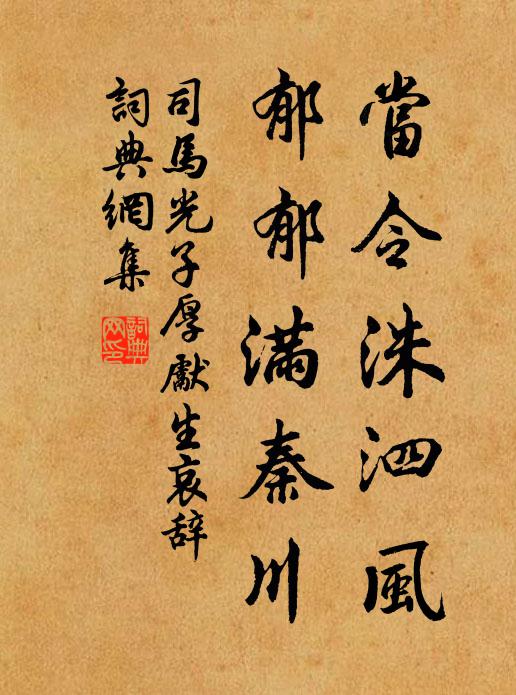 當令洙泗風
郁郁滿秦川
司馬光子厚獻生哀辞
詞典網集
詞典
网印